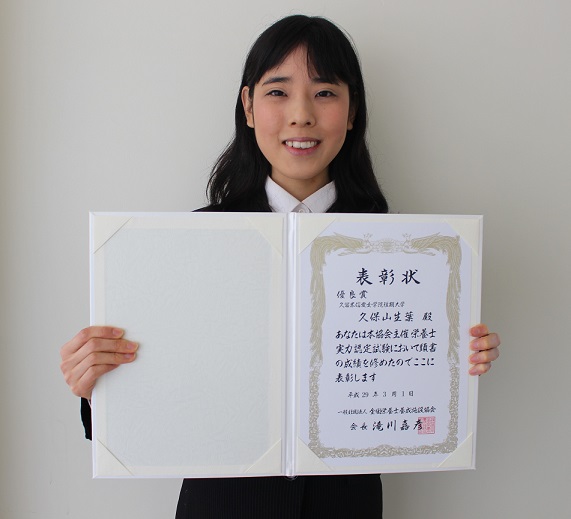 表彰状
優良賞
久留米信愛女学院短期大学
久保山生葉 殿
あなたは本協会主催栄養士
実力認定試験において頭書
の成績を修めたのでここに
表彰します
平成29年3月1日
一般社団法人 全国栄養士養成施設協会
会長 滝川嘉彦